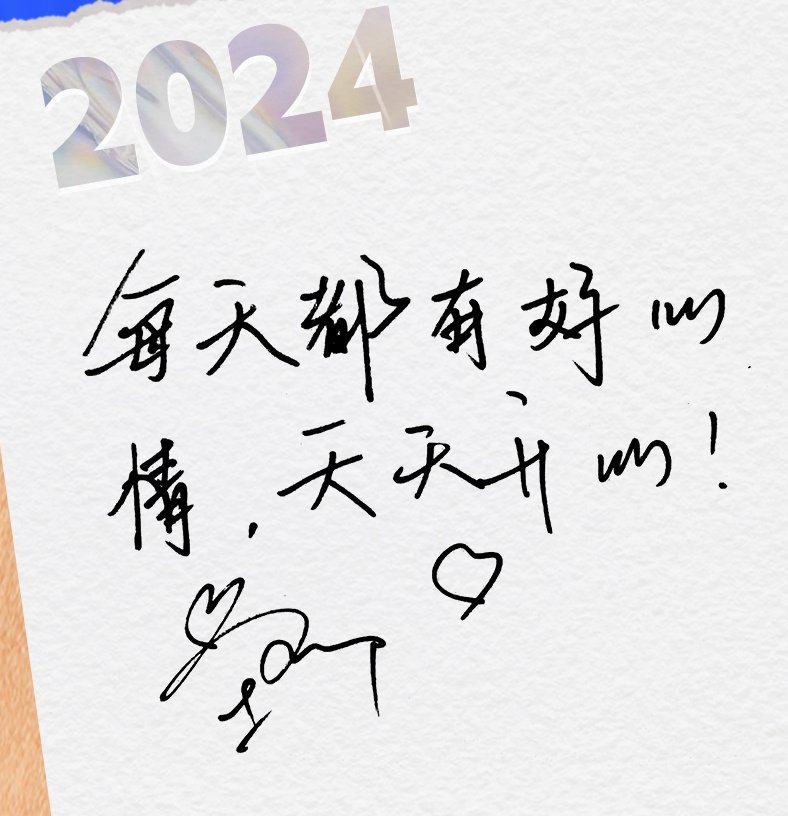 2024
每天都有好心
情,天天开心!